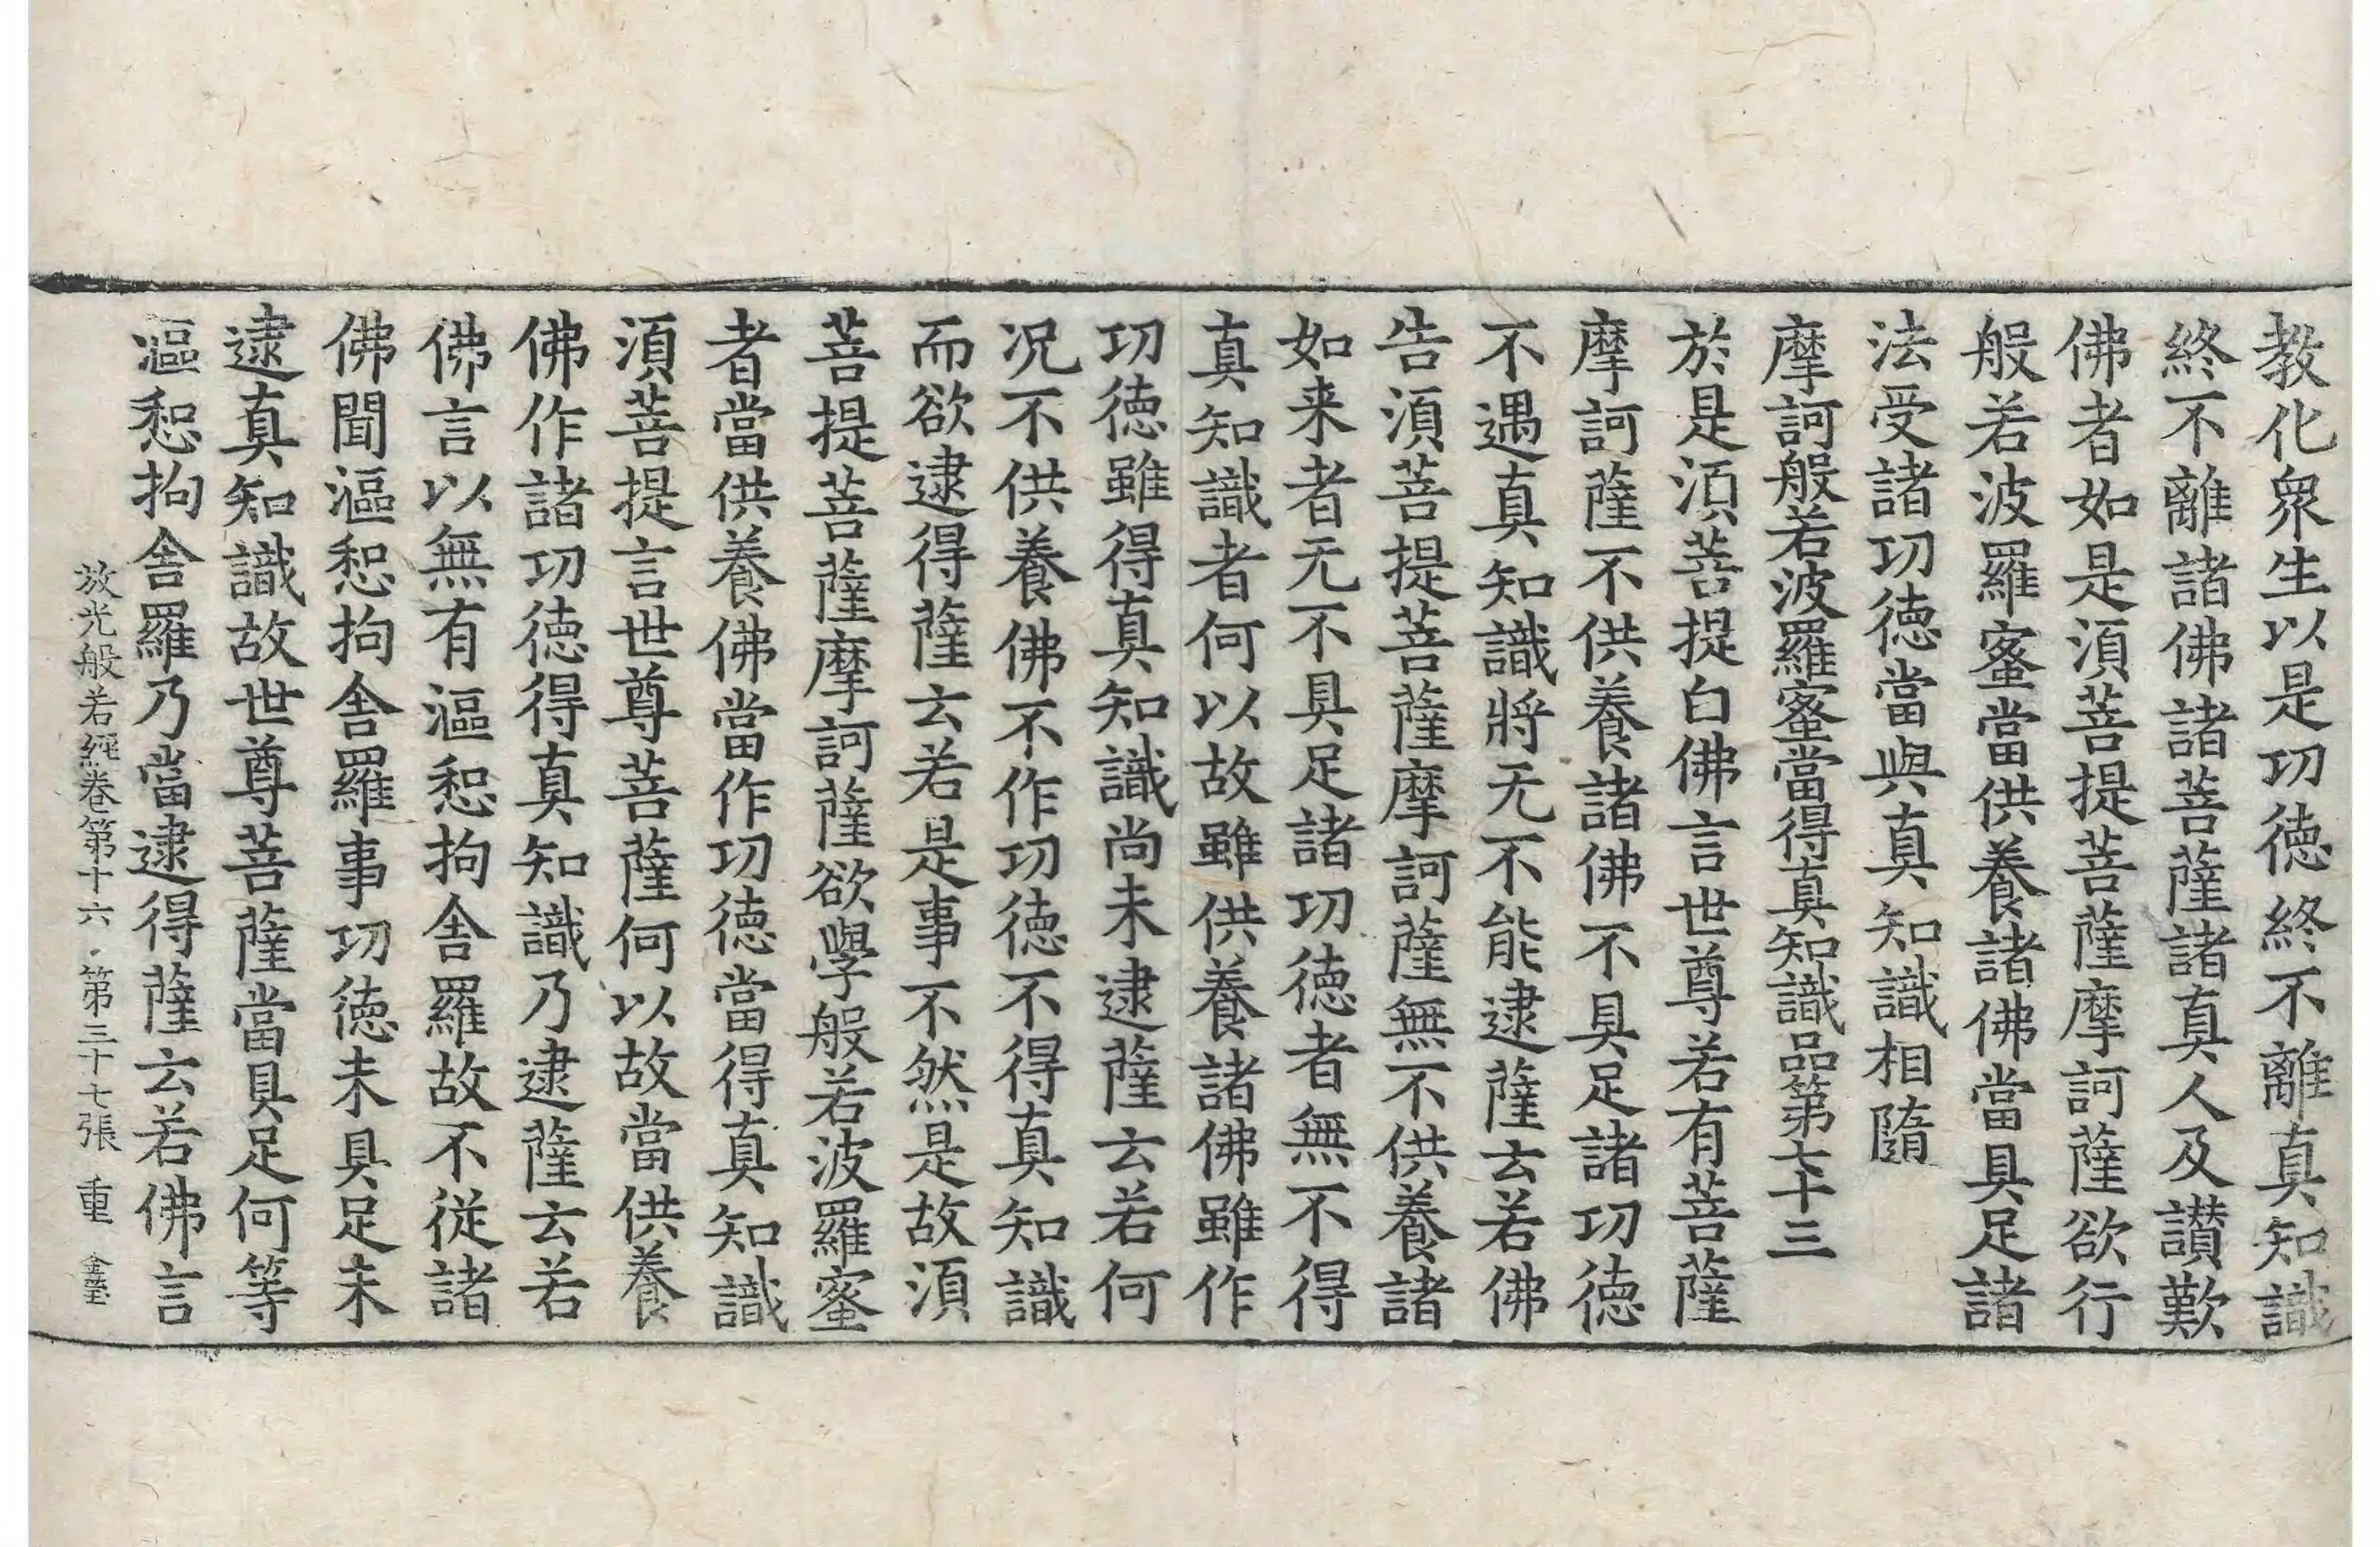 教化衆生以是功徳終不離真知識
終不離諸佛諸菩薩諸真人及讃歎
佛者如是湏菩提菩薩摩訶薩欲行
般若波羅蜜當供養諸佛當具足諸
法受諸功徳當與真知識相隨
摩訶般若波羅蜜當得真知識品第七十三
於是湏菩提白佛言世尊若有菩薩
摩訶薩不供養諸佛不具足諸功徳
不遇真知識將无不能逮薩云若佛
告湏菩提菩薩摩訶薩無不供養諸
如来者无不具足諸功徳者無不得
真知識者何以故雖供養諸佛雖作
功徳雖得真知識尚未逮薩云若何
况不供養佛不作功徳不得真知識
而欲逮得薩云若是事不然是故湏
菩提菩薩摩訶薩欲學般若波羅蜜
者當供養佛當作功徳當得真知識
湏菩提言世尊菩薩何以故當供養
佛作諸功徳得真知識乃逮薩云若
佛言以無有漚惒拘舍羅故不從諸
佛聞漚惒拘舍羅事功徳未具足未
逮真知識故世尊菩薩當具足何等
漚惒拘舍羅乃當逮得薩云若佛言
放光般若經卷第十六 第三十七張 重